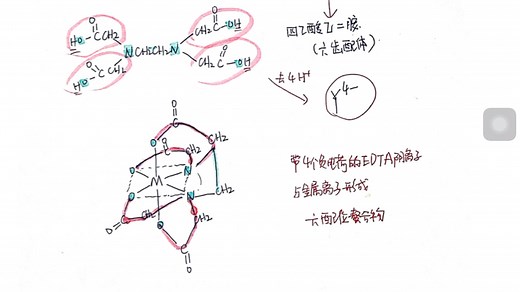 HO-C-CH2
O
NCH2CH2N
CH2C-OH
O
HO-C-CH2
O
CH2C-OH
O
四乙酸乙二胺
(六齿配体)
去4H+
Y4-
带4个负电荷的EDTA阴离子
与金属离子形成
六配位螯合物
O
C
O
C
CH2
O
CH2
O
N
M
O
N
CH2
C
CH2
CH2
O
O
C
O